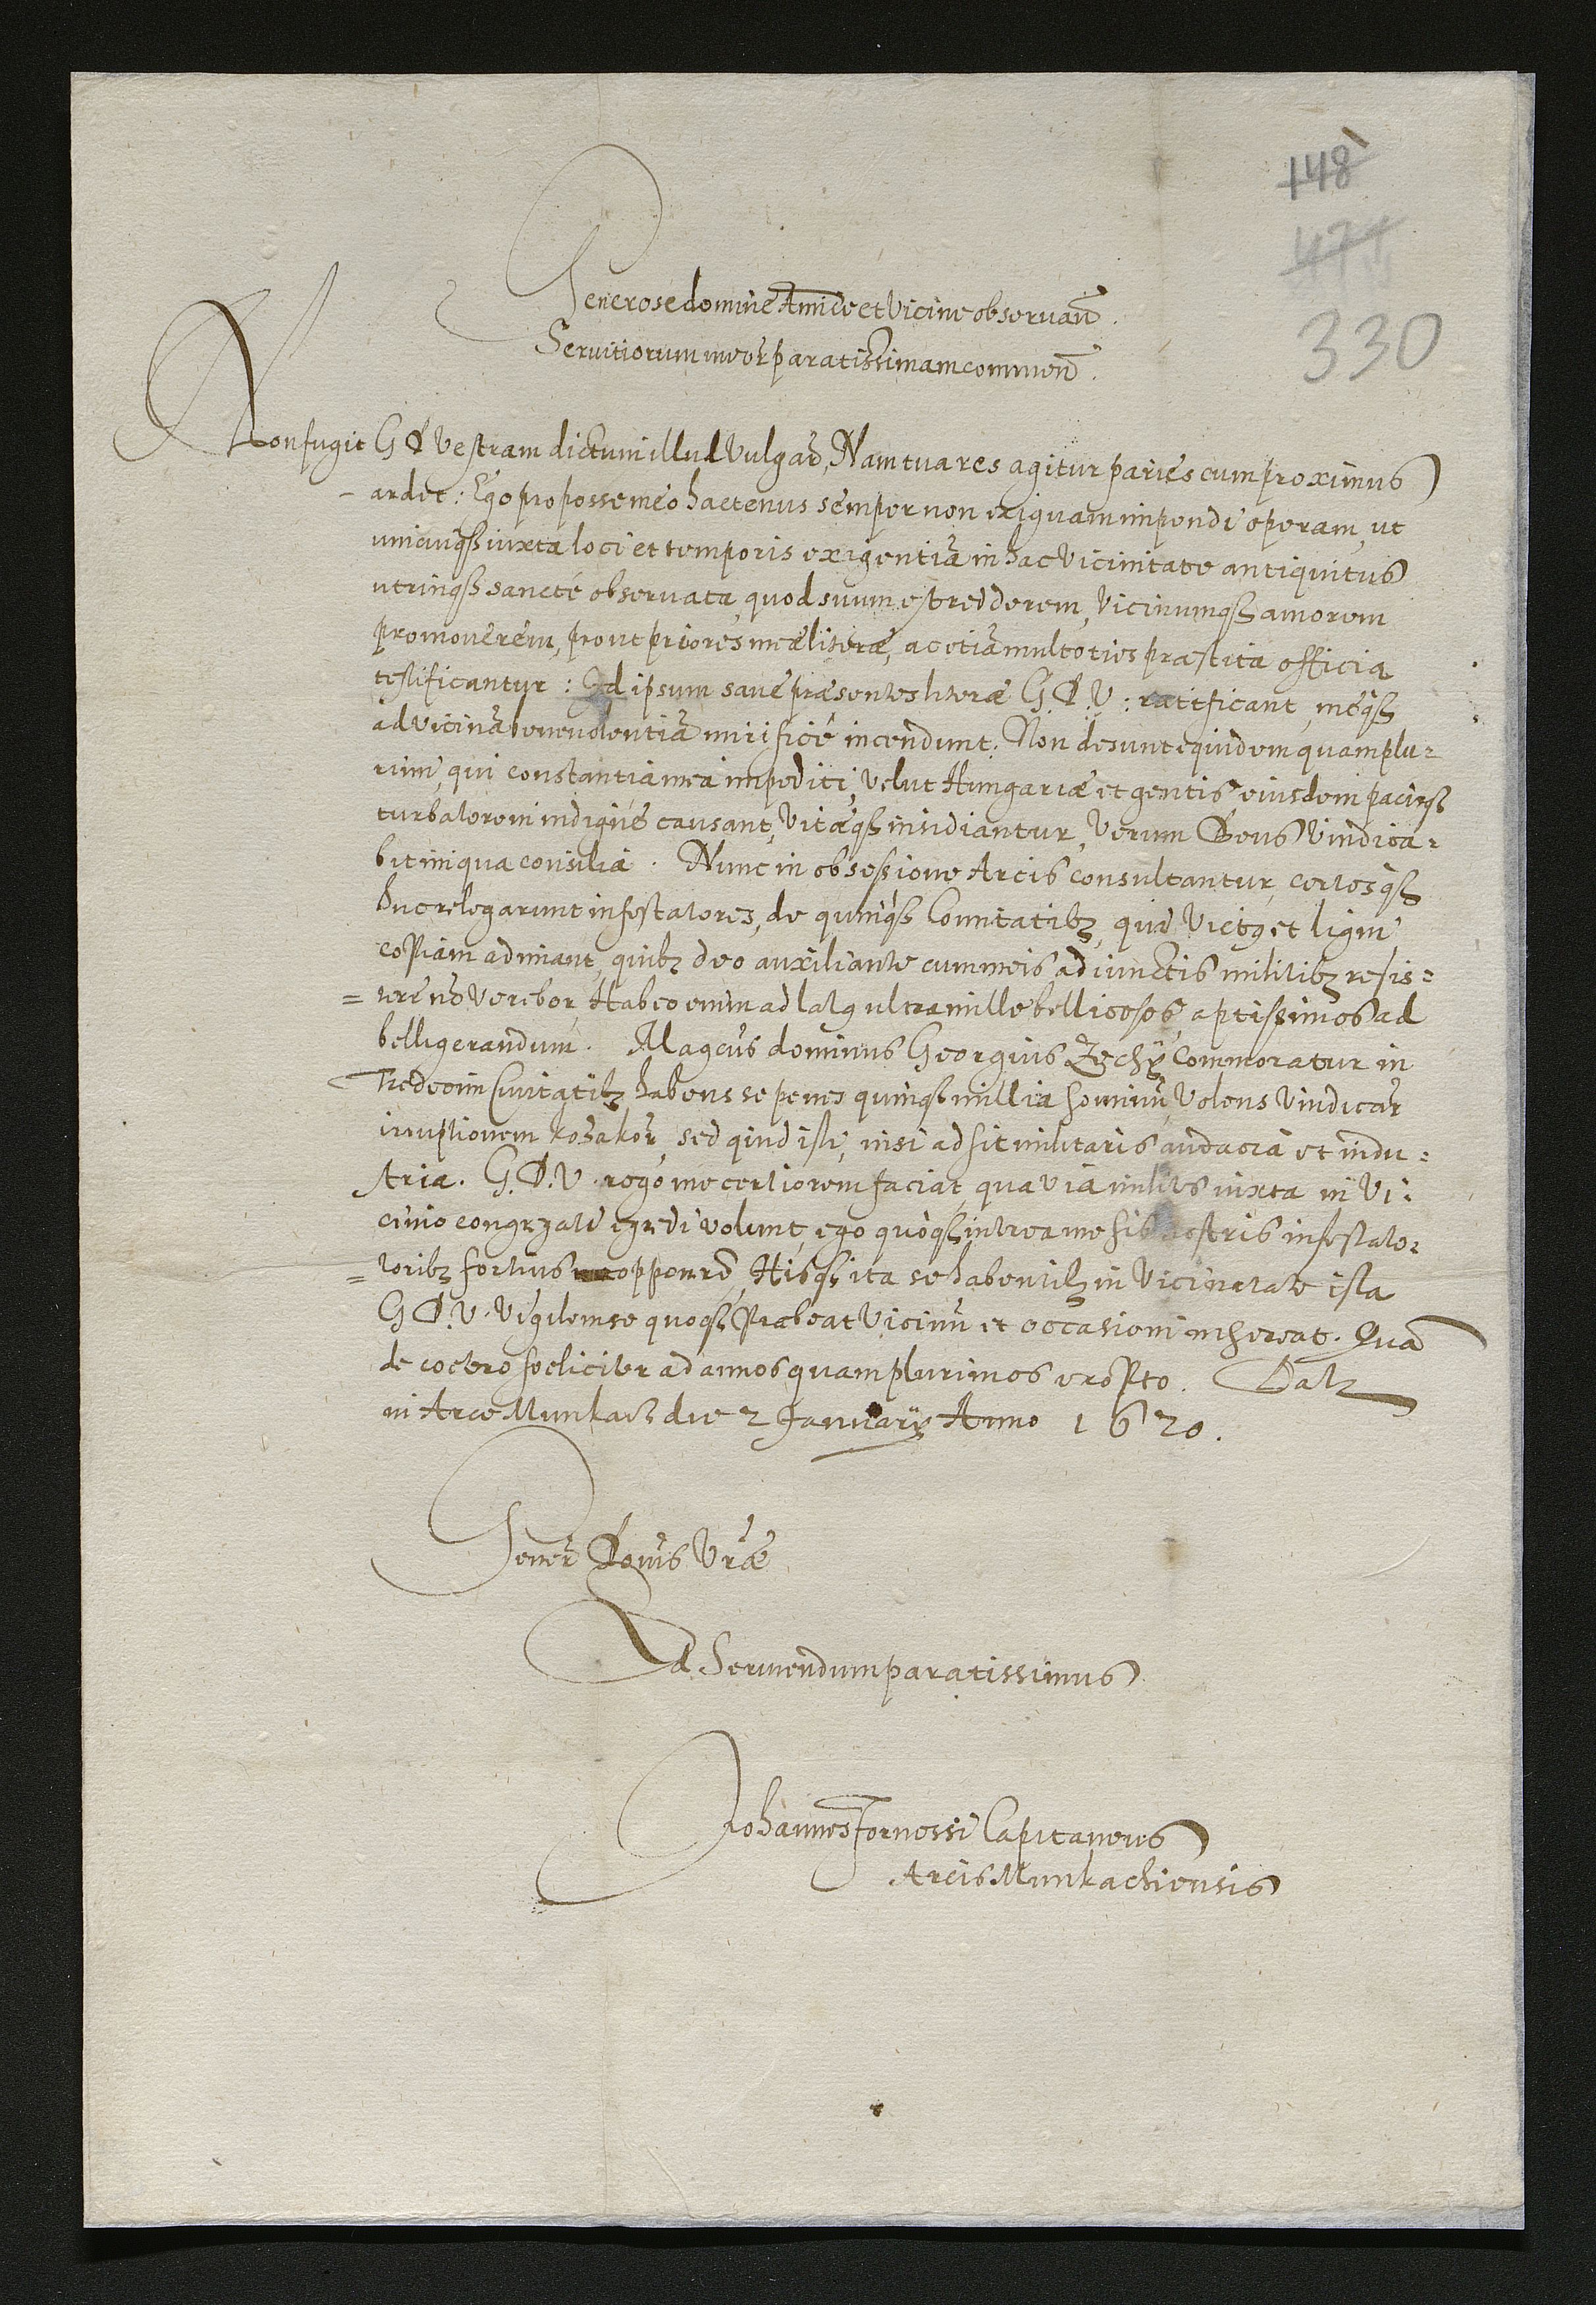 148
471
330
Generose domine Amice et Vicine observan̄.
Servitiorum meor̄ paratissimam commen̄.
Non fugit G D Vestram dictum illud Vulgare, Nam tua res agitur paries cum proximus
ardet: Ego pro posse meo hactenus semper non exiguam impendi operam, ut
unicuiqȝ iuxta loci et temporis exigentiā in hac Vicinitate antiquitus
utrinqȝ sancté observata, quod suum est redderem, Vicinumqȝ amorem
promoverem, prout priores meæ literæ, ac etiā multoties præstita officia
testificantur: Id ipsum sane præsentes literæ G. D. V: ratificant, meqȝ
ad vicinā benevolentiā mirificé incendunt. Non desunt equidem quamplu-
rimi, qui constantia mea impediti, velut Hungariæ et gentis eiusdem pacisqȝ
turbatorem indigné causant, Vitæqȝ insidiantur, Verum Deus Vindica-
bit iniqua consilia. Nunc in obsessione Arcis consultantur, certosqȝ
huc relegarunt infestatores, de quinqȝ Comitatibȝ, qui Victȝ et ligni
copiam adimant, quibȝ deo auxiliante cum meis adiunctis militibȝ resis-
tere nō verebor, Habeo enim ad latȝ ultra mille bellicosos, aptissimos ad
belligerandum. Magcūs dominus Georgius Zechÿ Commoratur in
Tredecim Civitatibȝ habens se penes quinqȝ millia hominū, Volens Vindicar̄
irruptionem kozakor̄, sed quid isti, nisi adsit militaris audacia et indu-
stria. G. D. V. rogo me certiorem faciat, qua via milites iuxta in Vi-
cinio congregati egredi volunt, ego quoqȝ interea me his nostris infestato-
toribȝ fortius opponerē, Hisqȝ ita se habentibȝ in Vicinitate ista
G D. V. Vigilem se quoqȝ præbeat Vicinū et occasioni inhereat. Quā
de coetero foeliciter ad annos quamplurimos exopto. Datȝ
in Arce Munkacz die 2 Januarÿ Anno 1620.
Gener̄ Domīs Vr̄æ
Ad Serviendum paratissimus
Johannes Fornossi Capitaneus
Arcis Munkachiensis